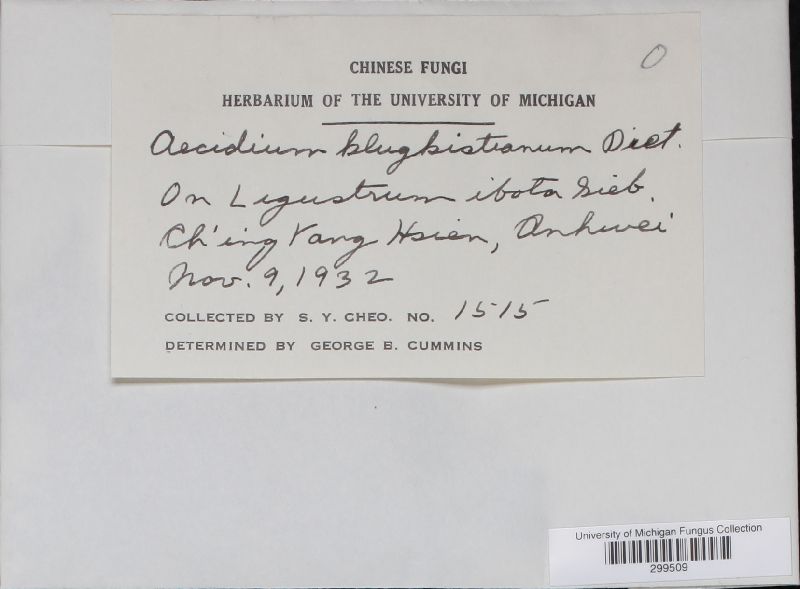 O
CHINESE FUNGI
HERBARIUM OF THE UNIVERSITY OF MICHIGAN
Aecidium klugkistianum Diet.
On Ligustrum ibota Sieb.
Ch'ing Yang Hsien, Anhwei
Nov. 9, 1932
COLLECTED BY S. Y. CHEO. NO. 1515
DETERMINED BY GEORGE B. CUMMINS
University of Michigan Fungus Collection
299509